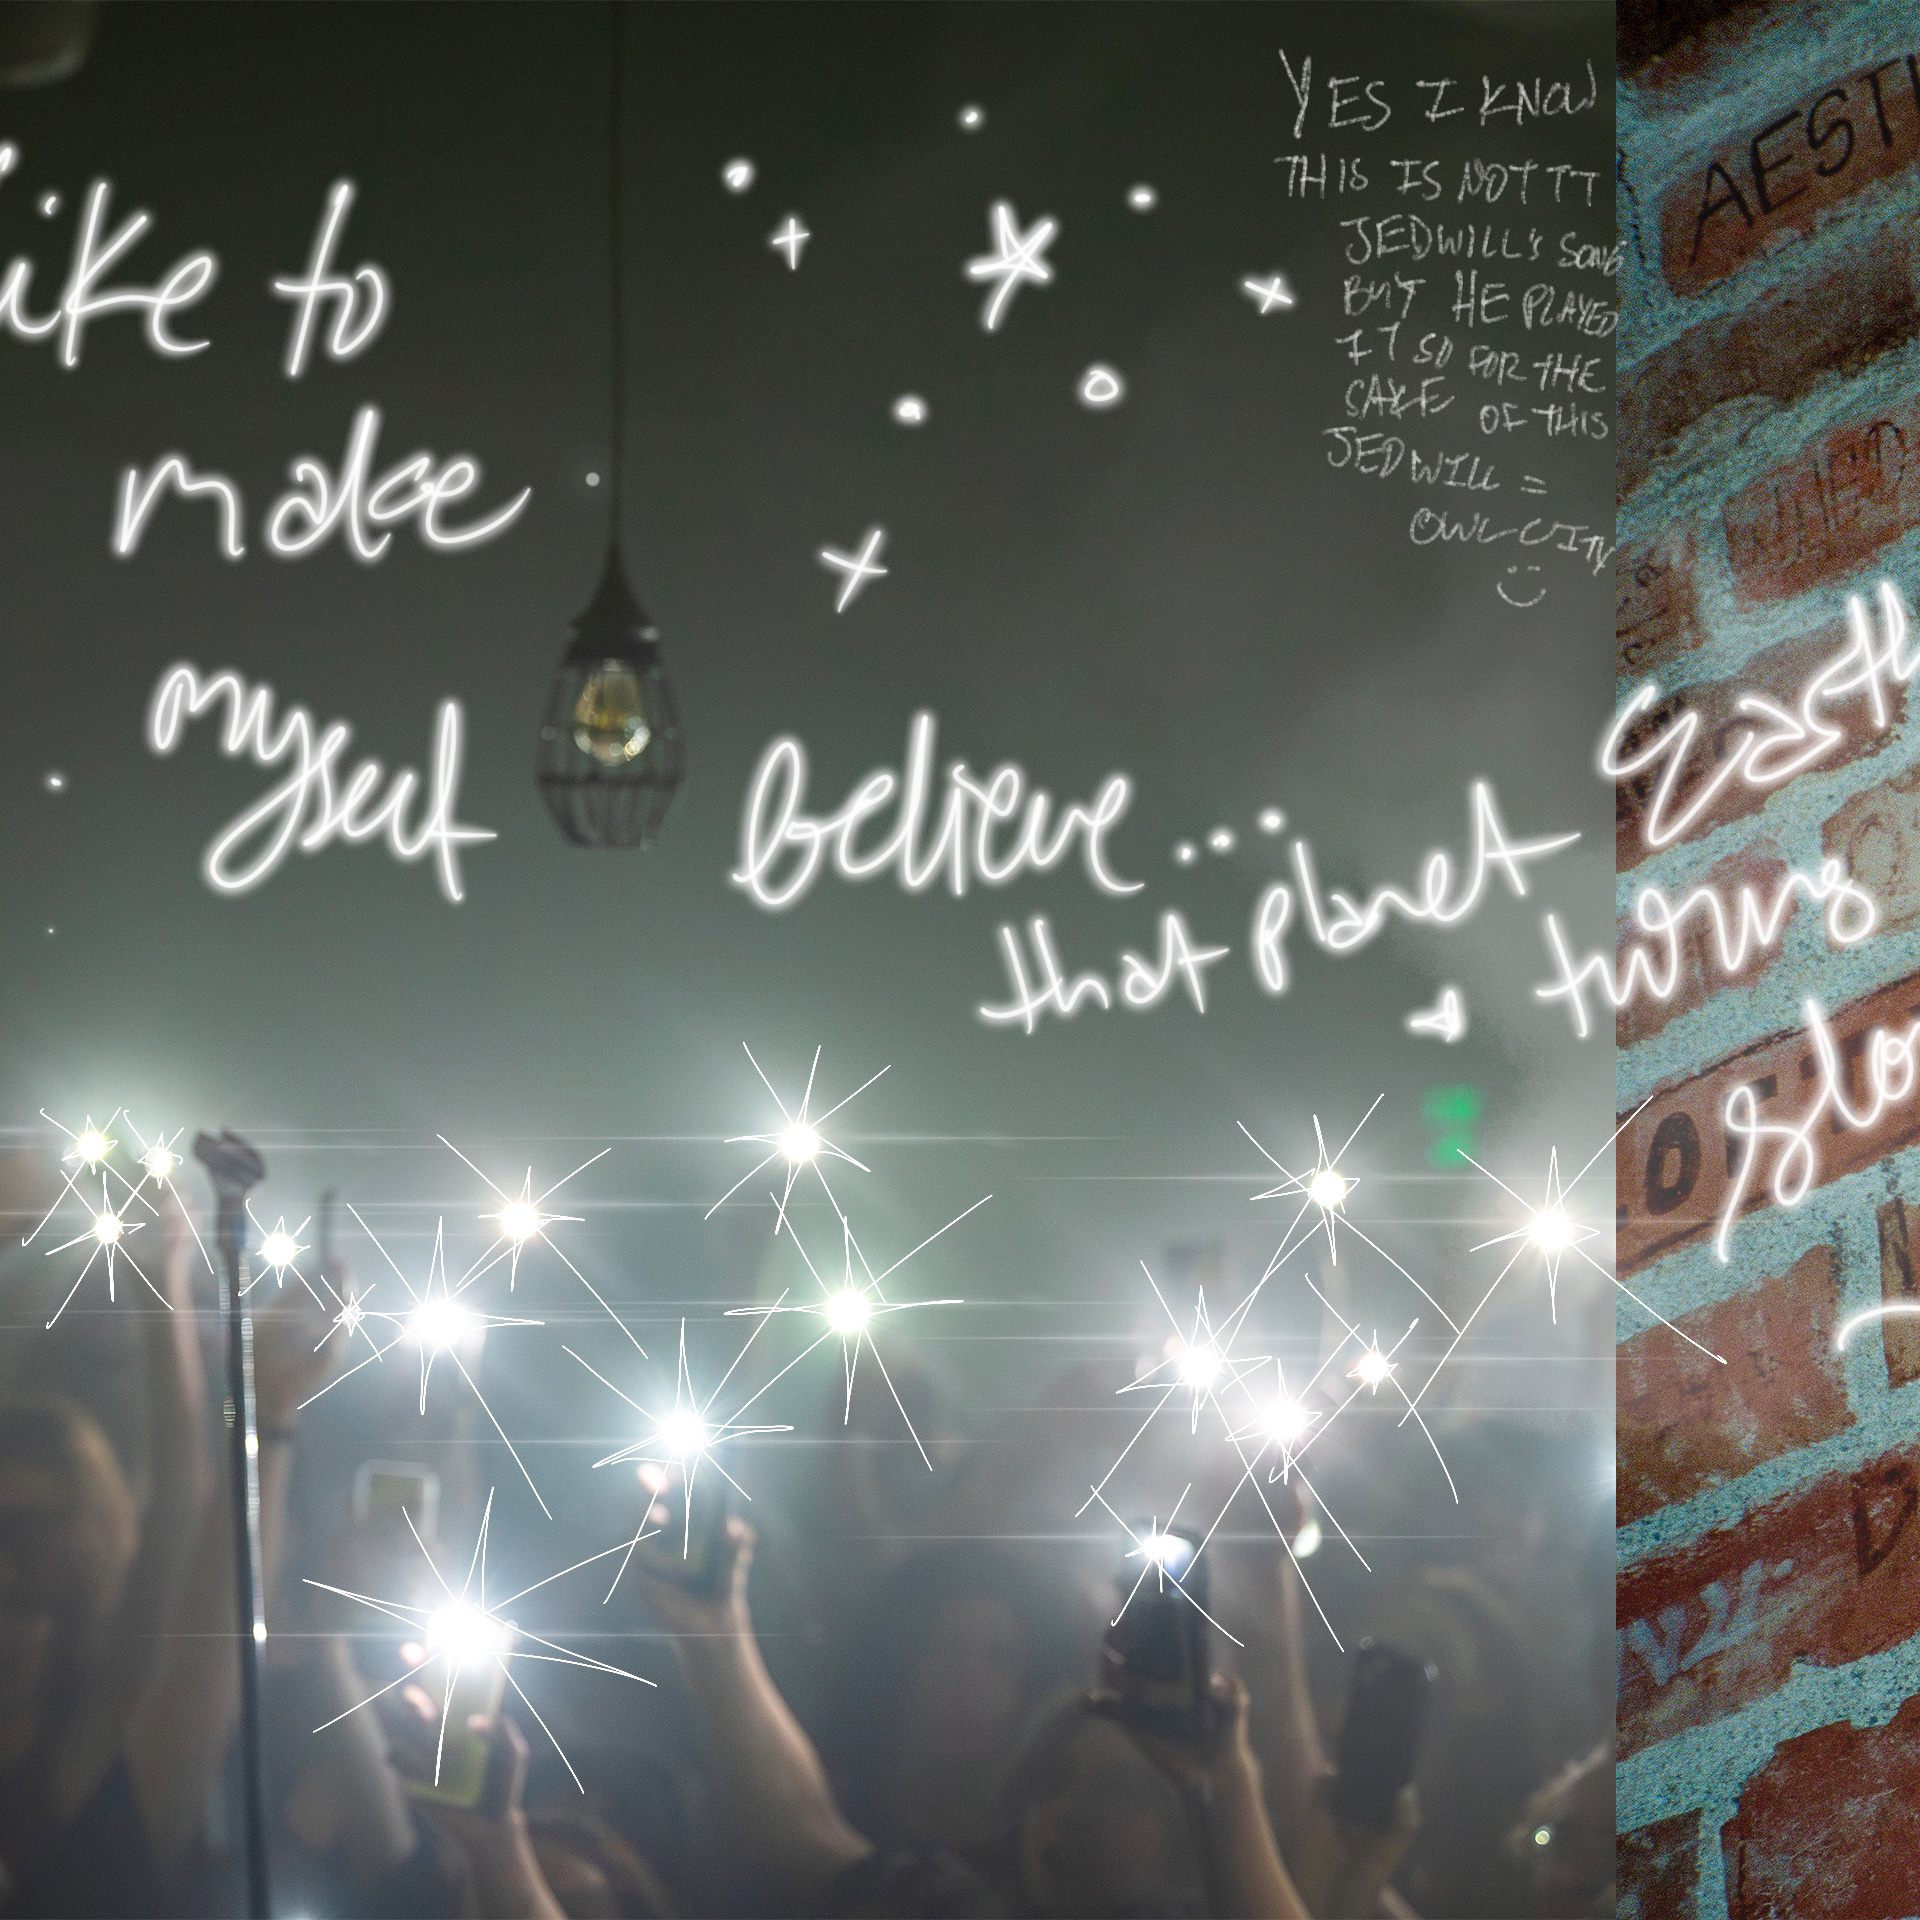 like to
make
myself
believe...
that planet Earth
turns
slo
YES I KNOW
THIS IS NOTTT
JEDWILL'S SONG
BUT HE PLAYED
IT SO FOR THE
SAKE OF THIS
JEDWILL =
OWL CITY
AESTH